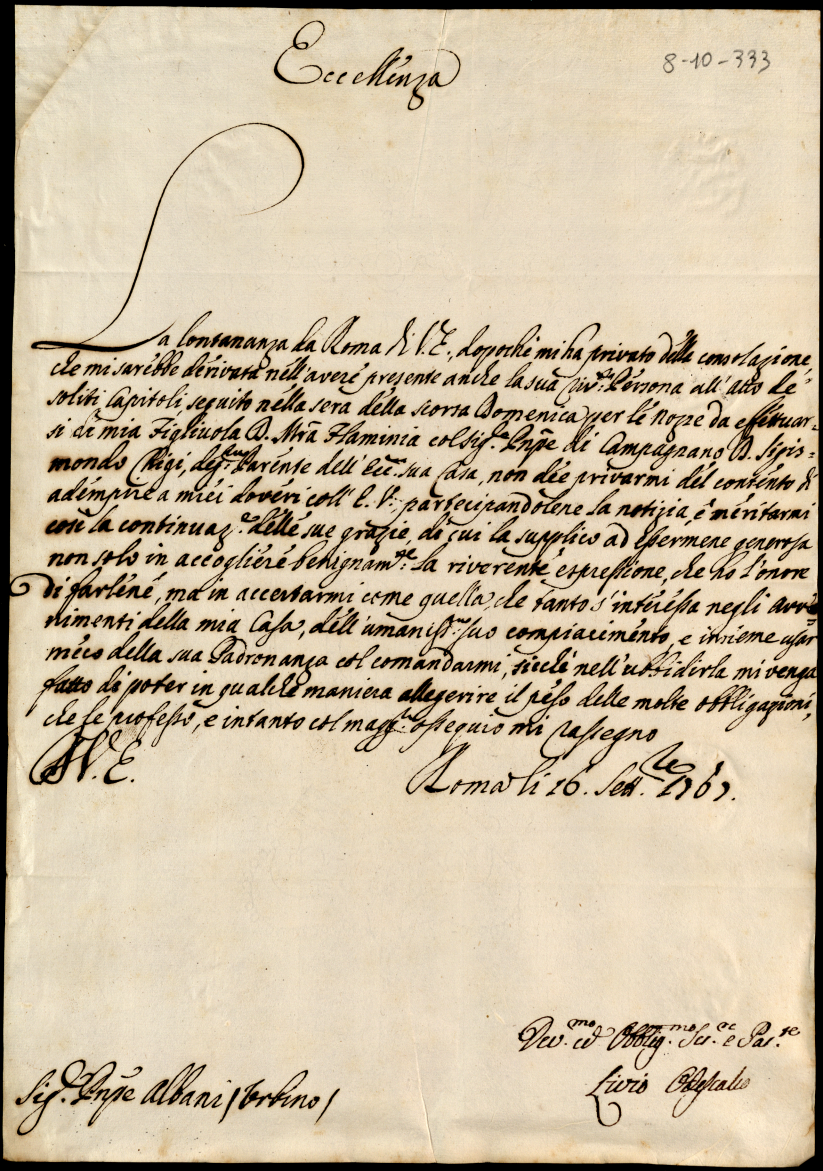 Eccellenza
8-10-333
La lontananza da Roma di V. E., dopochè mi ha privato della consolazione
che mi sarebbe derivata nell'avere presente anche la sua Persona all'Atto de'
soliti Capitoli, seguito nella sera della scorsa Domenica per le nozze da effettuar=
si di mia Figliuola D. Mrã Flaminia col Sig.e Pnpe di Campagnano D. Sigis=
mondo Chigi, deg.mo Parente dell'Ecc.ma sua Casa, non deè privarmi del contento di
adempire a miei doveri coll'E. V. partecipandolene la notizia, è meritarmi
così la continuaz.e delle sue grazie, di cui la supplico ad essermene generosa
non solo in accogliere benignam.te la riverente espressione, che ho l'onore
di farlene, ma in accertarmi come quella, che tanto s'interessa negli avve=
nimenti della mia Casa, dell'umaniss.o suo compiacimento, e insieme usar
meco della sua Padronanza col comandarmi, sicchè nell'ubbidirla mi venga
fatto di poter in qualche maniera allegerire il peso delle molte obbligazioni,
che le professo, e intanto col magg.re ossequio mi rassegno
D V. E.
Roma li 16. Sett.re 1767.
Dev.mo ed Obblig.mo Ser.re e Par.te
Livio Odescalco
Sig.e Pnpe Albani / Urbino /